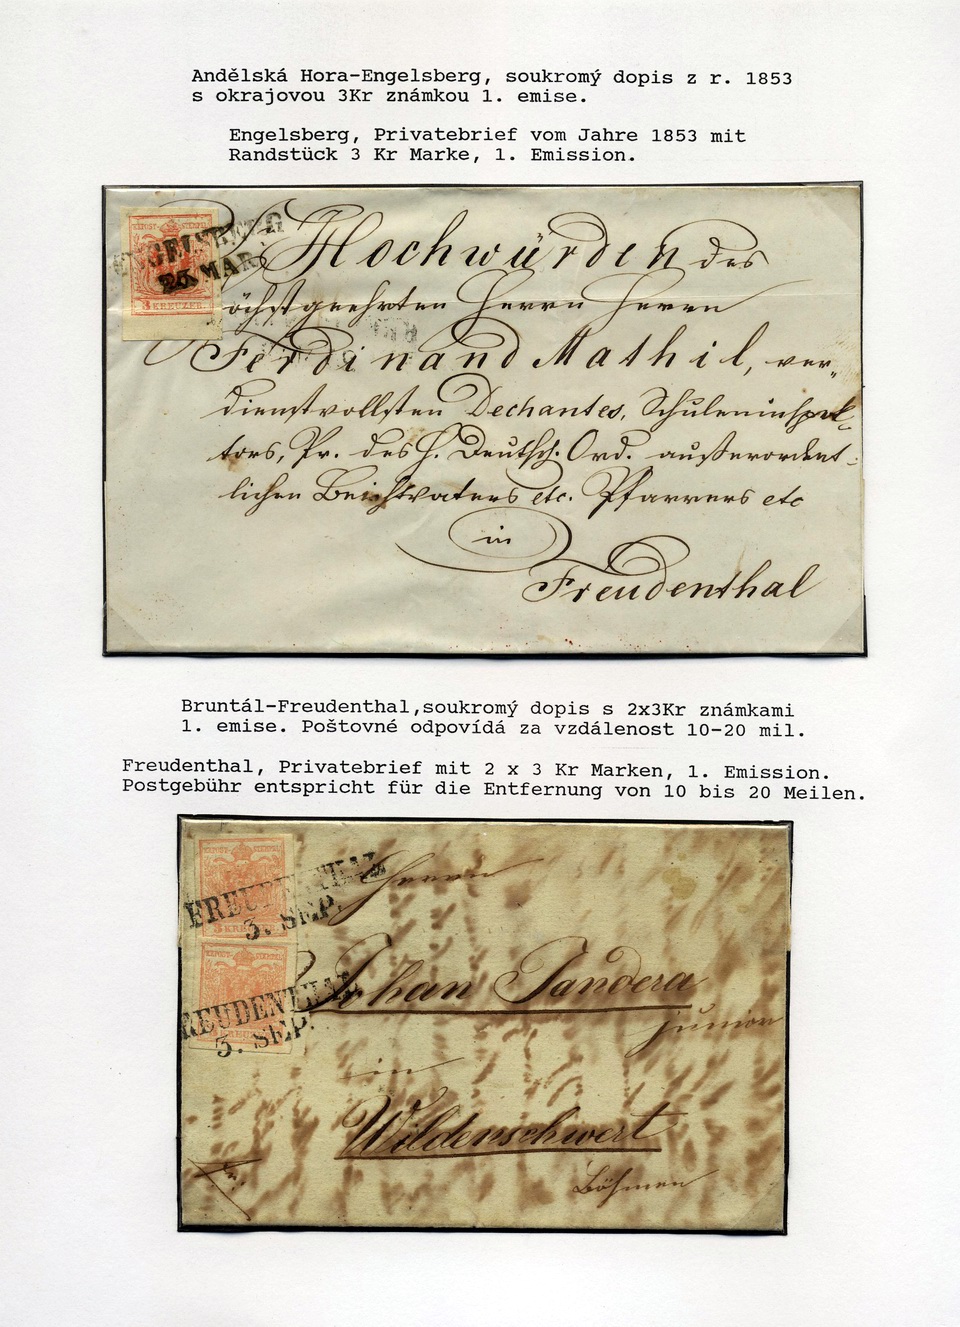 Andělská Hora-Engelsberg, soukromý dopis z r. 1853
s okrajovou 3Kr známkou 1. emise.
Engelsberg, Privatebrief vom Jahre 1853 mit
Randstück 3 Kr Marke, 1. Emission.
ENGELSBERG
23. MAR.
3 KREUZER
Hochwürden des
höchstgeehrten Herrn Herrn
Ferdinand Mathil, ver-
dienstvollsten Dechantes, Schuleninspek-
tors, Pr. des H. Deutsch. Ord. außerordent-
lichen Beichtvaters etc. Pfarrers etc
in
Freudenthal
Bruntál-Freudenthal,soukromý dopis s 2x3Kr známkami
1. emise. Poštovné odpovídá za vzdálenost 10-20 mil.
Freudenthal, Privatebrief mit 2 x 3 Kr Marken, 1. Emission.
Postgebühr entspricht für die Entfernung von 10 bis 20 Meilen.
FREUDENTHAL
3. SEP.
FREUDENTHAL
3. SEP.
Herrn
Johan Jandera
junior
in
Wildenschwert
Böhmen